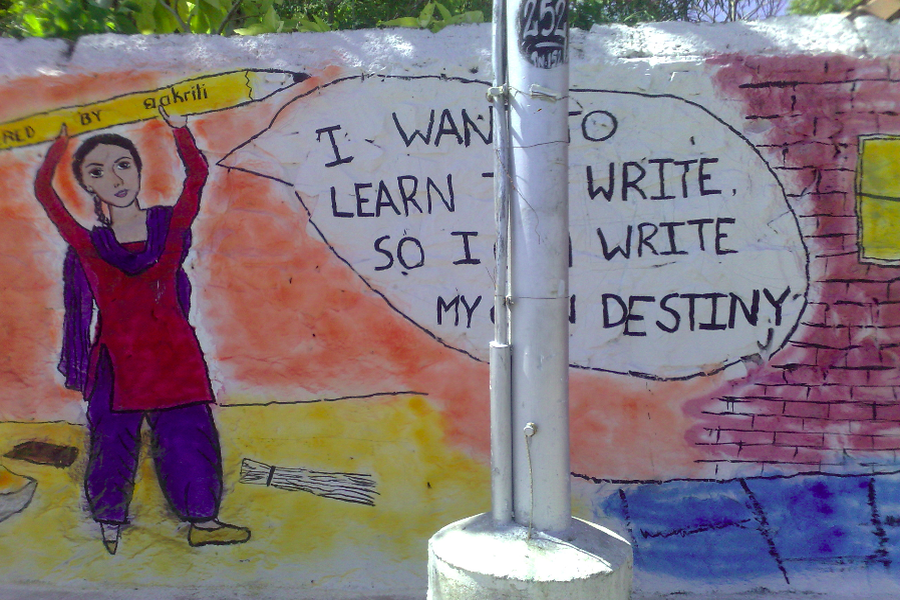 RED BY aakriti
I WAN TO
LEARN T WRITE.
SO I WRITE
MY DESTINY
252